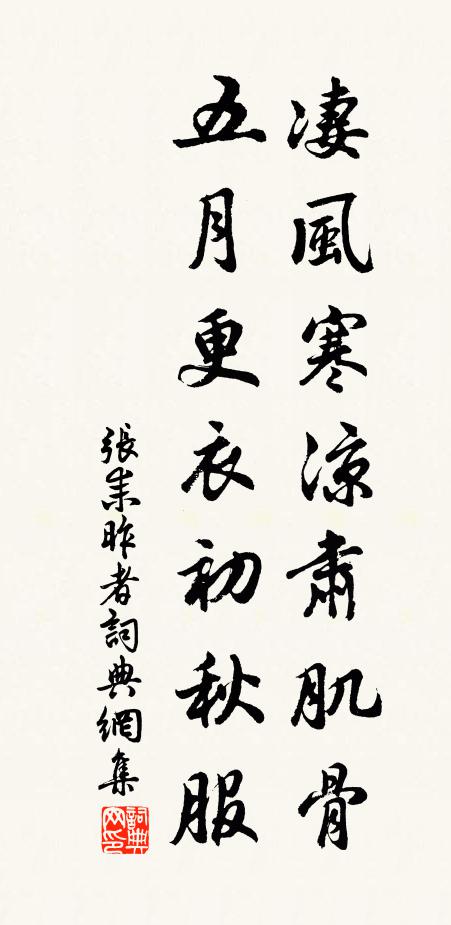 凄風寒涼肅肌骨
五月更衣初秋服
張耒昨者詞典網集
詞典網印